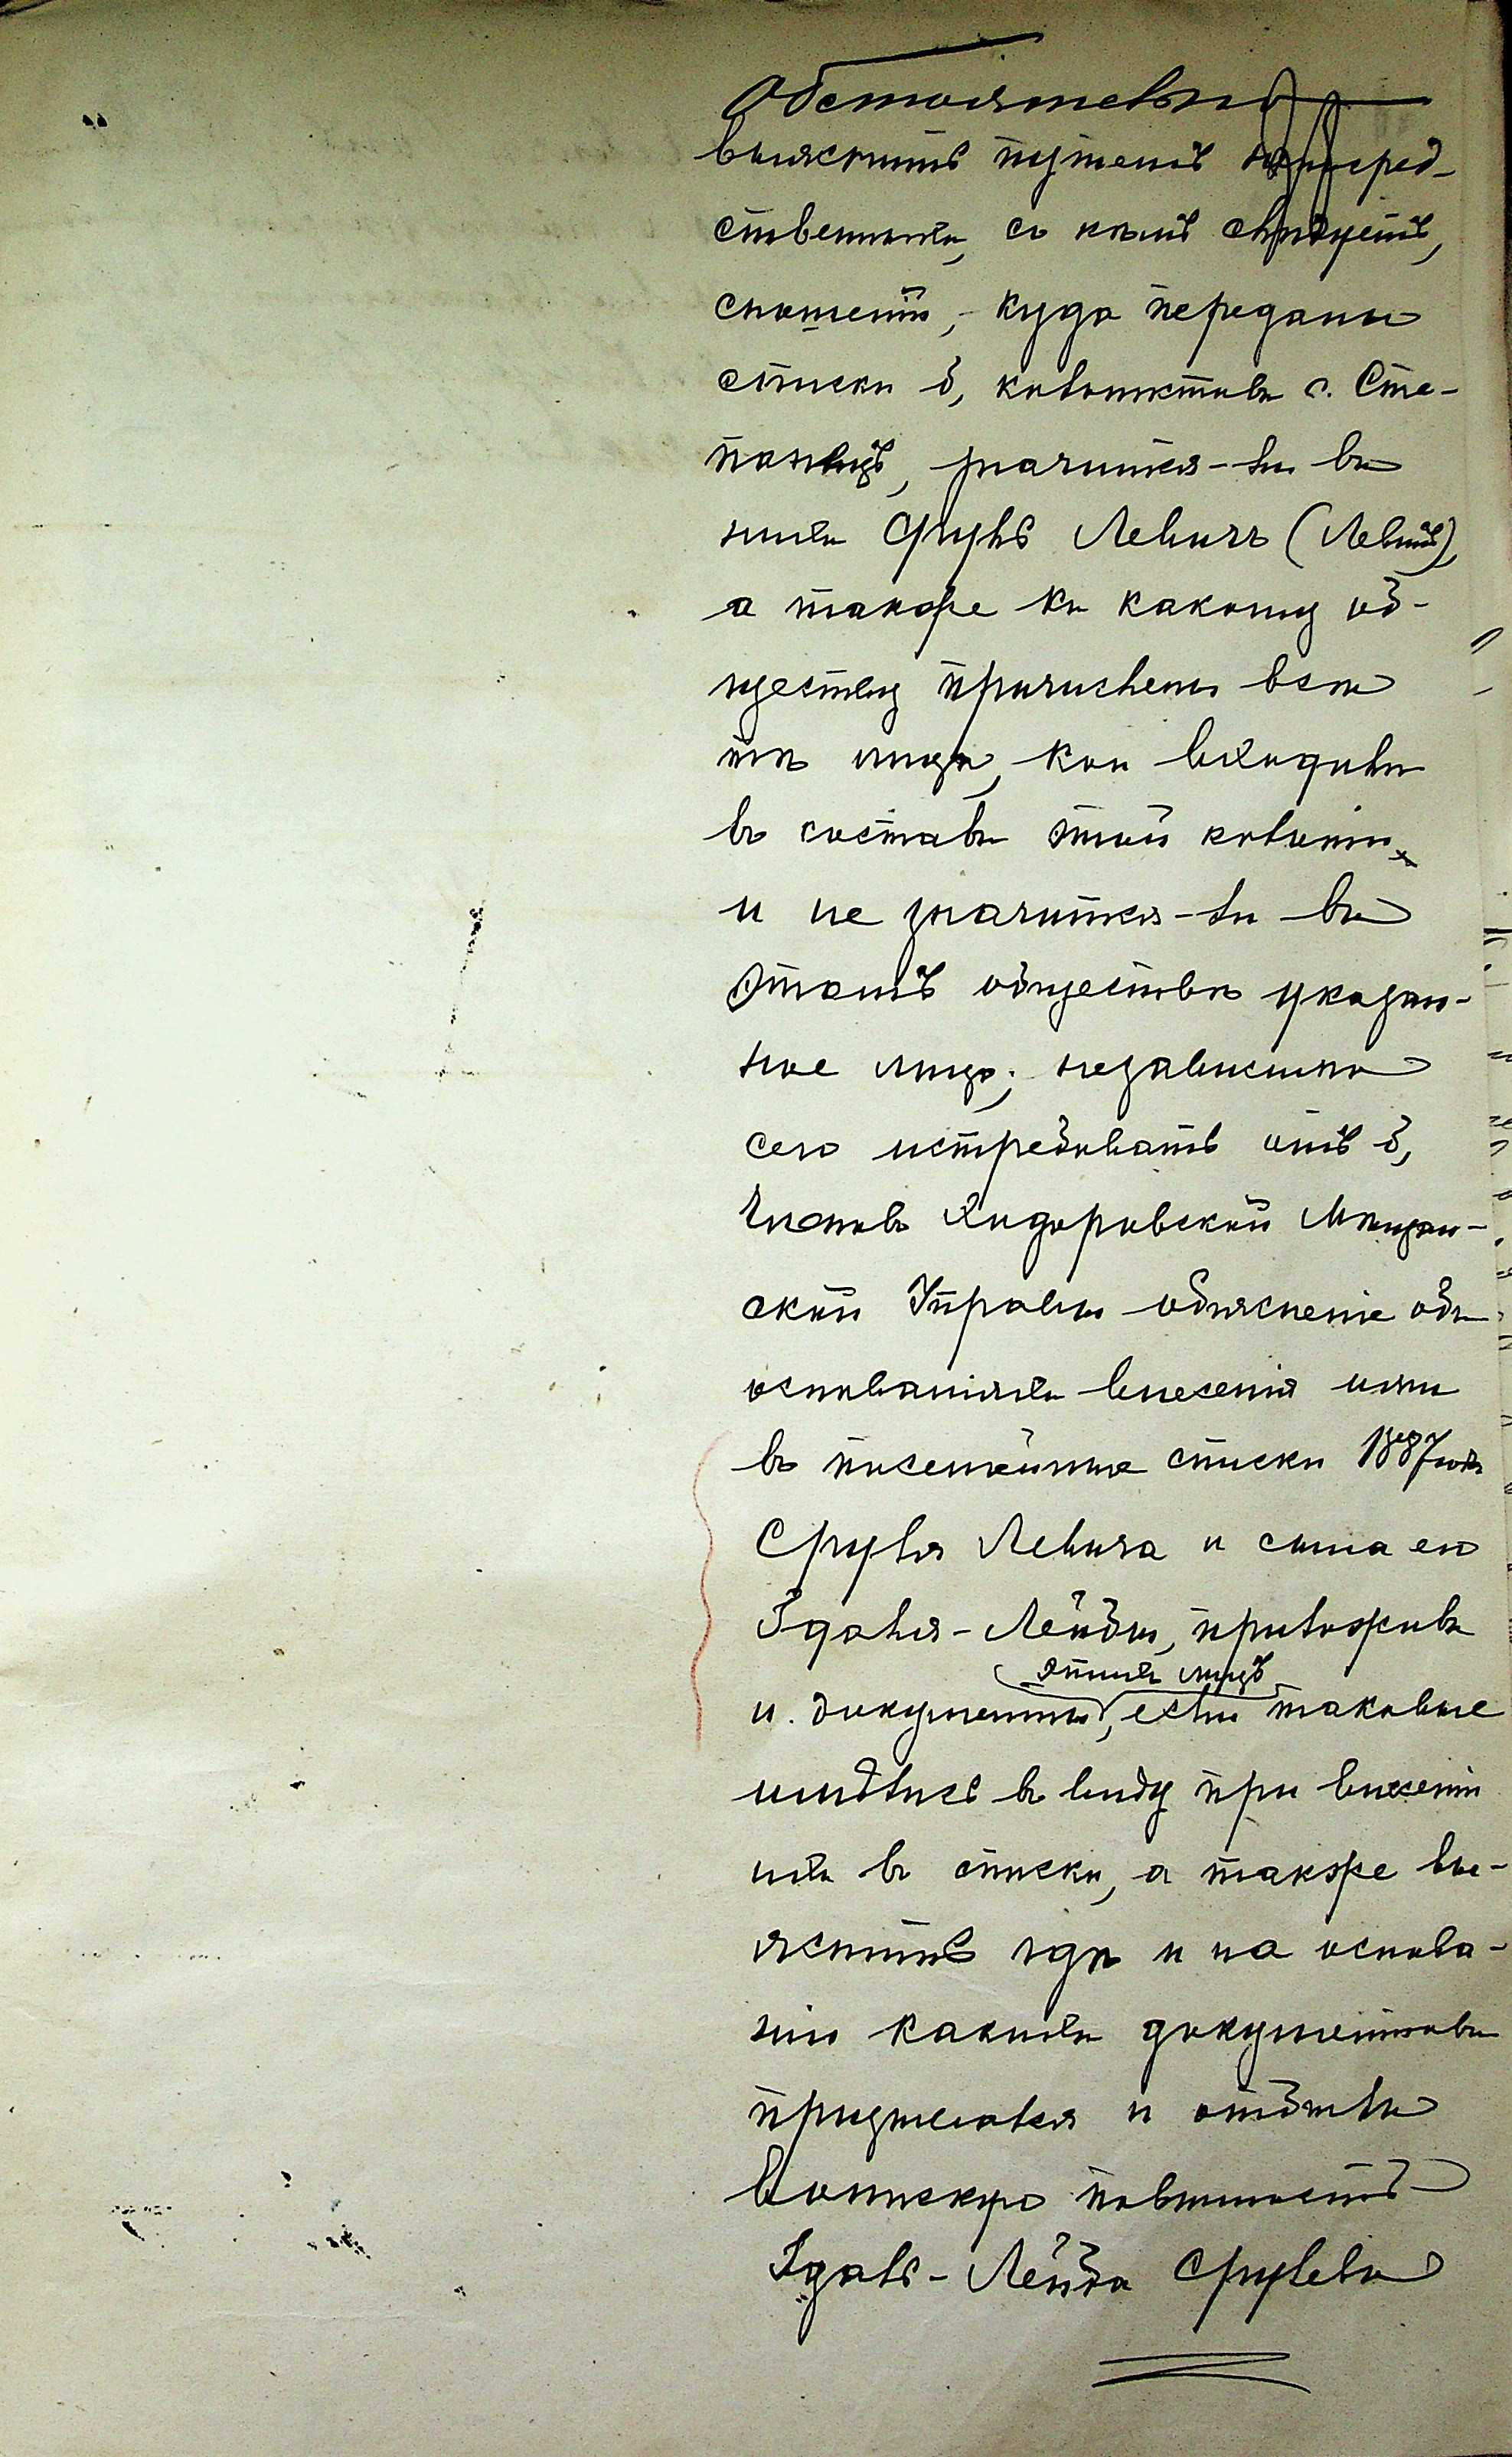 Обстоятельно
выяснить путемъ непосред-
ственныхъ, съ кѣмъ слѣдуетъ,
сношеній, куда переданы
списки б, колонистовъ с. Сте-
панецъ, значится-ли въ
нихъ Сруль Левичъ (Левитъ),
а также къ какому об-
ществу причислены всѣ
тѣ лица, кои входили
въ составъ этой колоніи
и не значится-ли въ
этомъ обществѣ указан-
ное лицо; независимо
сего истребовать отъ б,
Членовъ Ходоровской Мѣщан-
ской Управы объясненіе объ
основаніяхъ внесенія ими
въ посемейные списки 1887 года
Сруля Левича и сына его
Удаля-Лейбы, приложивъ
этихъ лицъ
и документы, если таковые
имѣлись въ виду при внесеніи
ихъ въ списки, а также вы-
яснить гдѣ и на основа-
ніи какихъ документовъ
призывался и отбылъ
воинскую повинность
Удаль-Лейба Срулевъ